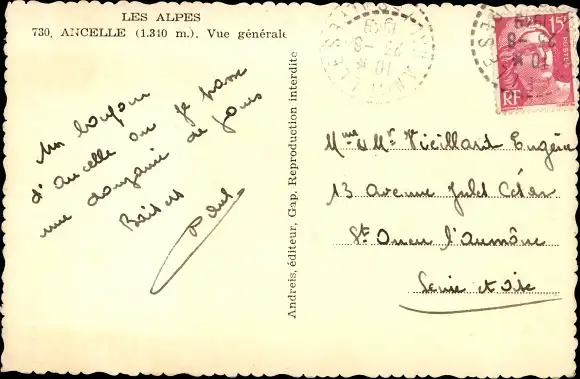 LES ALPES
730, ANCELLE (1.340 m.). Vue générale
Un bonjour
d'Ancelle où je passe
une douzaine de jours
Baisers
Paul
Andreis, éditeur, Gap. Reproduction interdite
15F
POSTES
RF
10 H
23 - 8
1949
Mme & Mr Vieillard Eugène
13 Avenue Jules César
St. Ouen l'Aumône
Seine et Oise